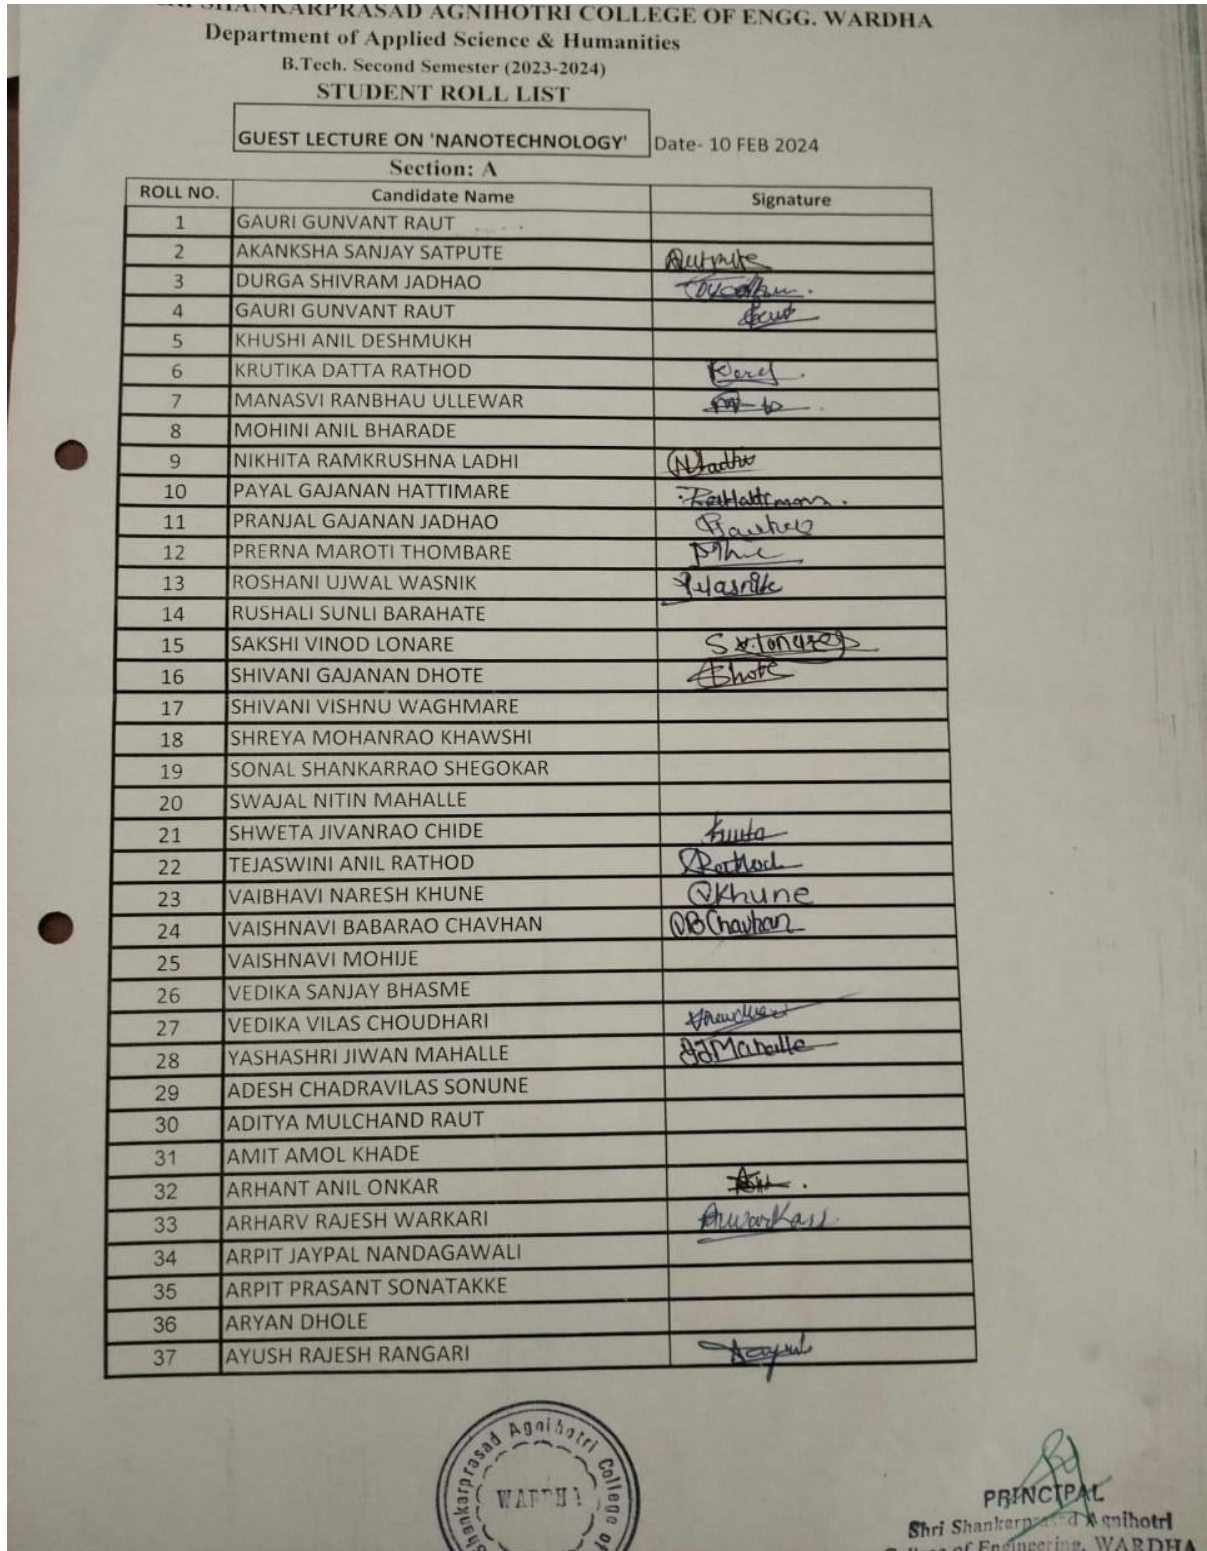 SHANKARPRASAD AGNIHOTRI COLLEGE OF ENGG. WARDHA
Department of Applied Science & Humanities
B.Tech. Second Semester (2023-2024)
STUDENT ROLL LIST
GUEST LECTURE ON 'NANOTECHNOLOGY' Date- 10 FEB 2024
Section: A
ROLL NO. Candidate Name Signature
1 GAURI GUNVANT RAUT
2 AKANKSHA SANJAY SATPUTE
3 DURGA SHIVRAM JADHAO
4 GAURI GUNVANT RAUT
5 KHUSHI ANIL DESHMUKH
6 KRUTIKA DATTA RATHOD
7 MANASVI RANBHAU ULLEWAR
8 MOHINI ANIL BHARADE
9 NIKHITA RAMKRUSHNA LADHI
10 PAYAL GAJANAN HATTIMARE
11 PRANJAL GAJANAN JADHAO
12 PRERNA MAROTI THOMBARE
13 ROSHANI UJWAL WASNIK
14 RUSHALI SUNLI BARAHATE
15 SAKSHI VINOD LONARE
16 SHIVANI GAJANAN DHOTE
17 SHIVANI VISHNU WAGHMARE
18 SHREYA MOHANRAO KHAWSHI
19 SONAL SHANKARRAO SHEGOKAR
20 SWAJAL NITIN MAHALLE
21 SHWETA JIVANRAO CHIDE
22 TEJASWINI ANIL RATHOD Rathod
23 VAIBHAVI NARESH KHUNE VKhune
24 VAISHNAVI BABARAO CHAVHAN VBChavhan
25 VAISHNAVI MOHIJE
26 VEDIKA SANJAY BHASME
27 VEDIKA VILAS CHOUDHARI
28 YASHASHRI JIWAN MAHALLE YJMahalle
29 ADESH CHADRAVILAS SONUNE
30 ADITYA MULCHAND RAUT
31 AMIT AMOL KHADE
32 ARHANT ANIL ONKAR
33 ARHARV RAJESH WARKARI
34 ARPIT JAYPAL NANDAGAWALI
35 ARPIT PRASANT SONATAKKE
36 ARYAN DHOLE
37 AYUSH RAJESH RANGARI
Shankarprasad Agnihotri College of
WARDHA
PRINCIPAL
Shri Shankarprasad Agnihotri
College of Engineering, WARDHA